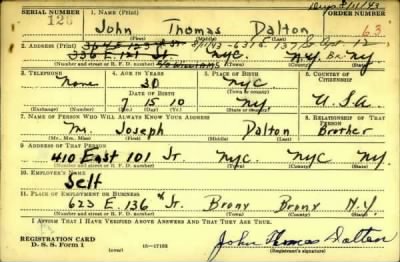 Dup 8/11/43
SERIAL NUMBER 1. NAME (Print) ORDER NUMBER
126 John Thomas Dalton 63
(First) (Middle) (Last)
2. ADDRESS (Print) 364 E 123 St 8/1/43 - 631 E 137 St Apt 12
336 E. 121 St NYC. N.Y. NY
(Number and street or R. F. D. number) (Town) (County) (State)
3. TELEPHONE 4. AGE IN YEARS 5. PLACE OF BIRTH 6. COUNTRY OF CITIZENSHIP
None 30 NYC
DATE OF BIRTH (Town or county)
7 15 10 NY U.S.A
(Exchange) (Number) (Mo.) (Day) (Yr.) (State or country)
7. NAME OF PERSON WHO WILL ALWAYS KNOW YOUR ADDRESS 8. RELATIONSHIP OF THAT PERSON
Mr. Joseph Dalton Brother
(Mr., Mrs., Miss) (First) (Middle) (Last)
9. ADDRESS OF THAT PERSON
410 East 101 St. NYC. NYC NY.
(Number and street or R. F. D. number) (Town) (County) (State)
10. EMPLOYER'S NAME
Self
11. PLACE OF EMPLOYMENT OR BUSINESS
623 E. 136th St. Bronx Bronx N.Y.
(Number and street or R. F. D. number) (Town) (County) (State)
I AFFIRM THAT I HAVE VERIFIED ABOVE ANSWERS AND THAT THEY ARE TRUE.
REGISTRATION CARD
D. S. S. Form 1 (over) 16—17105 John Thomas Dalton
(Registrant's signature)